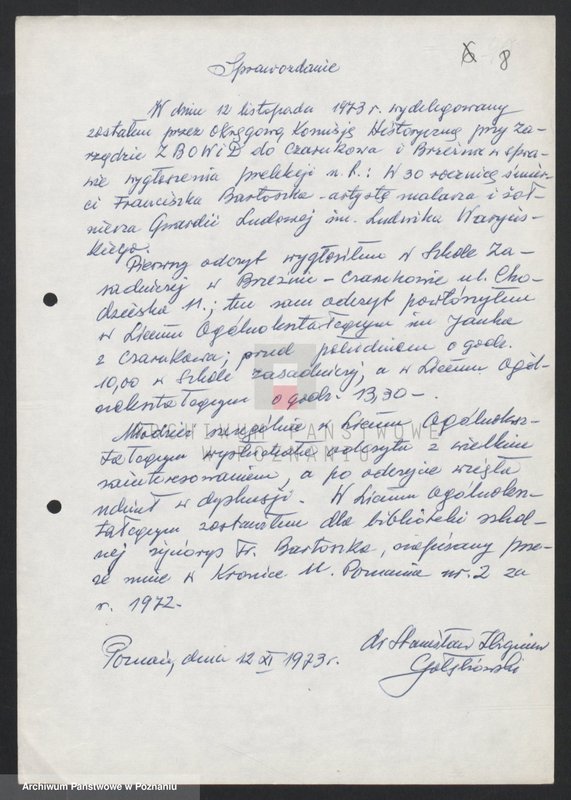 8
Sprawozdanie
W dniu 12 listopada 1973 r. wydelegowany
zostałem przez Okręgową Komisję Historyczną przy Za-
rządzie ZBOWiD do Czarnkowa i Brzeźna w spra-
wie wygłoszenia prelekcji n.t.: W 30 rocznicę śmier-
ci Franciszka Bartoszka - artysty malarza i żoł-
nierza Gwardii Ludowej im. Ludwika Waryńs-
kiego.
Pierwszy odczyt wygłosiłem w Szkole Za-
sadniczej w Brzeźnie - Czarnkowie ul. Cho-
dzieska 11.; ten sam odczyt powtórzyłem
w Liceum Ogólnokształcącym im Janka
z Czarnkowa; przed południem o godz.
10,00 w Szkole Zasadniczej, a w Liceum Ogól-
nokształcącym o godz. 13,30 -.
Młodzież szczególnie w Liceum Ogólnoksz-
tałcącym wysłuchała odczytu z wielkim
zainteresowaniem, a po odczycie wzięła
udział w dyskusji. W Liceum Ogólnoksz-
tałcącym zostawiłem dla biblioteki szkol-
nej życiorys Fr. Bartoszka, napisany prze-
ze mnie w Kronice M. Poznania nr. 2 za
r. 1972.-
Poznań, dnia 12 XI 1973 r.
dr Stanisław Zbigniew
ARCHIWUM PAŃSTWOWE
W POZNANIU
Archiwum Państwowe w Poznaniu